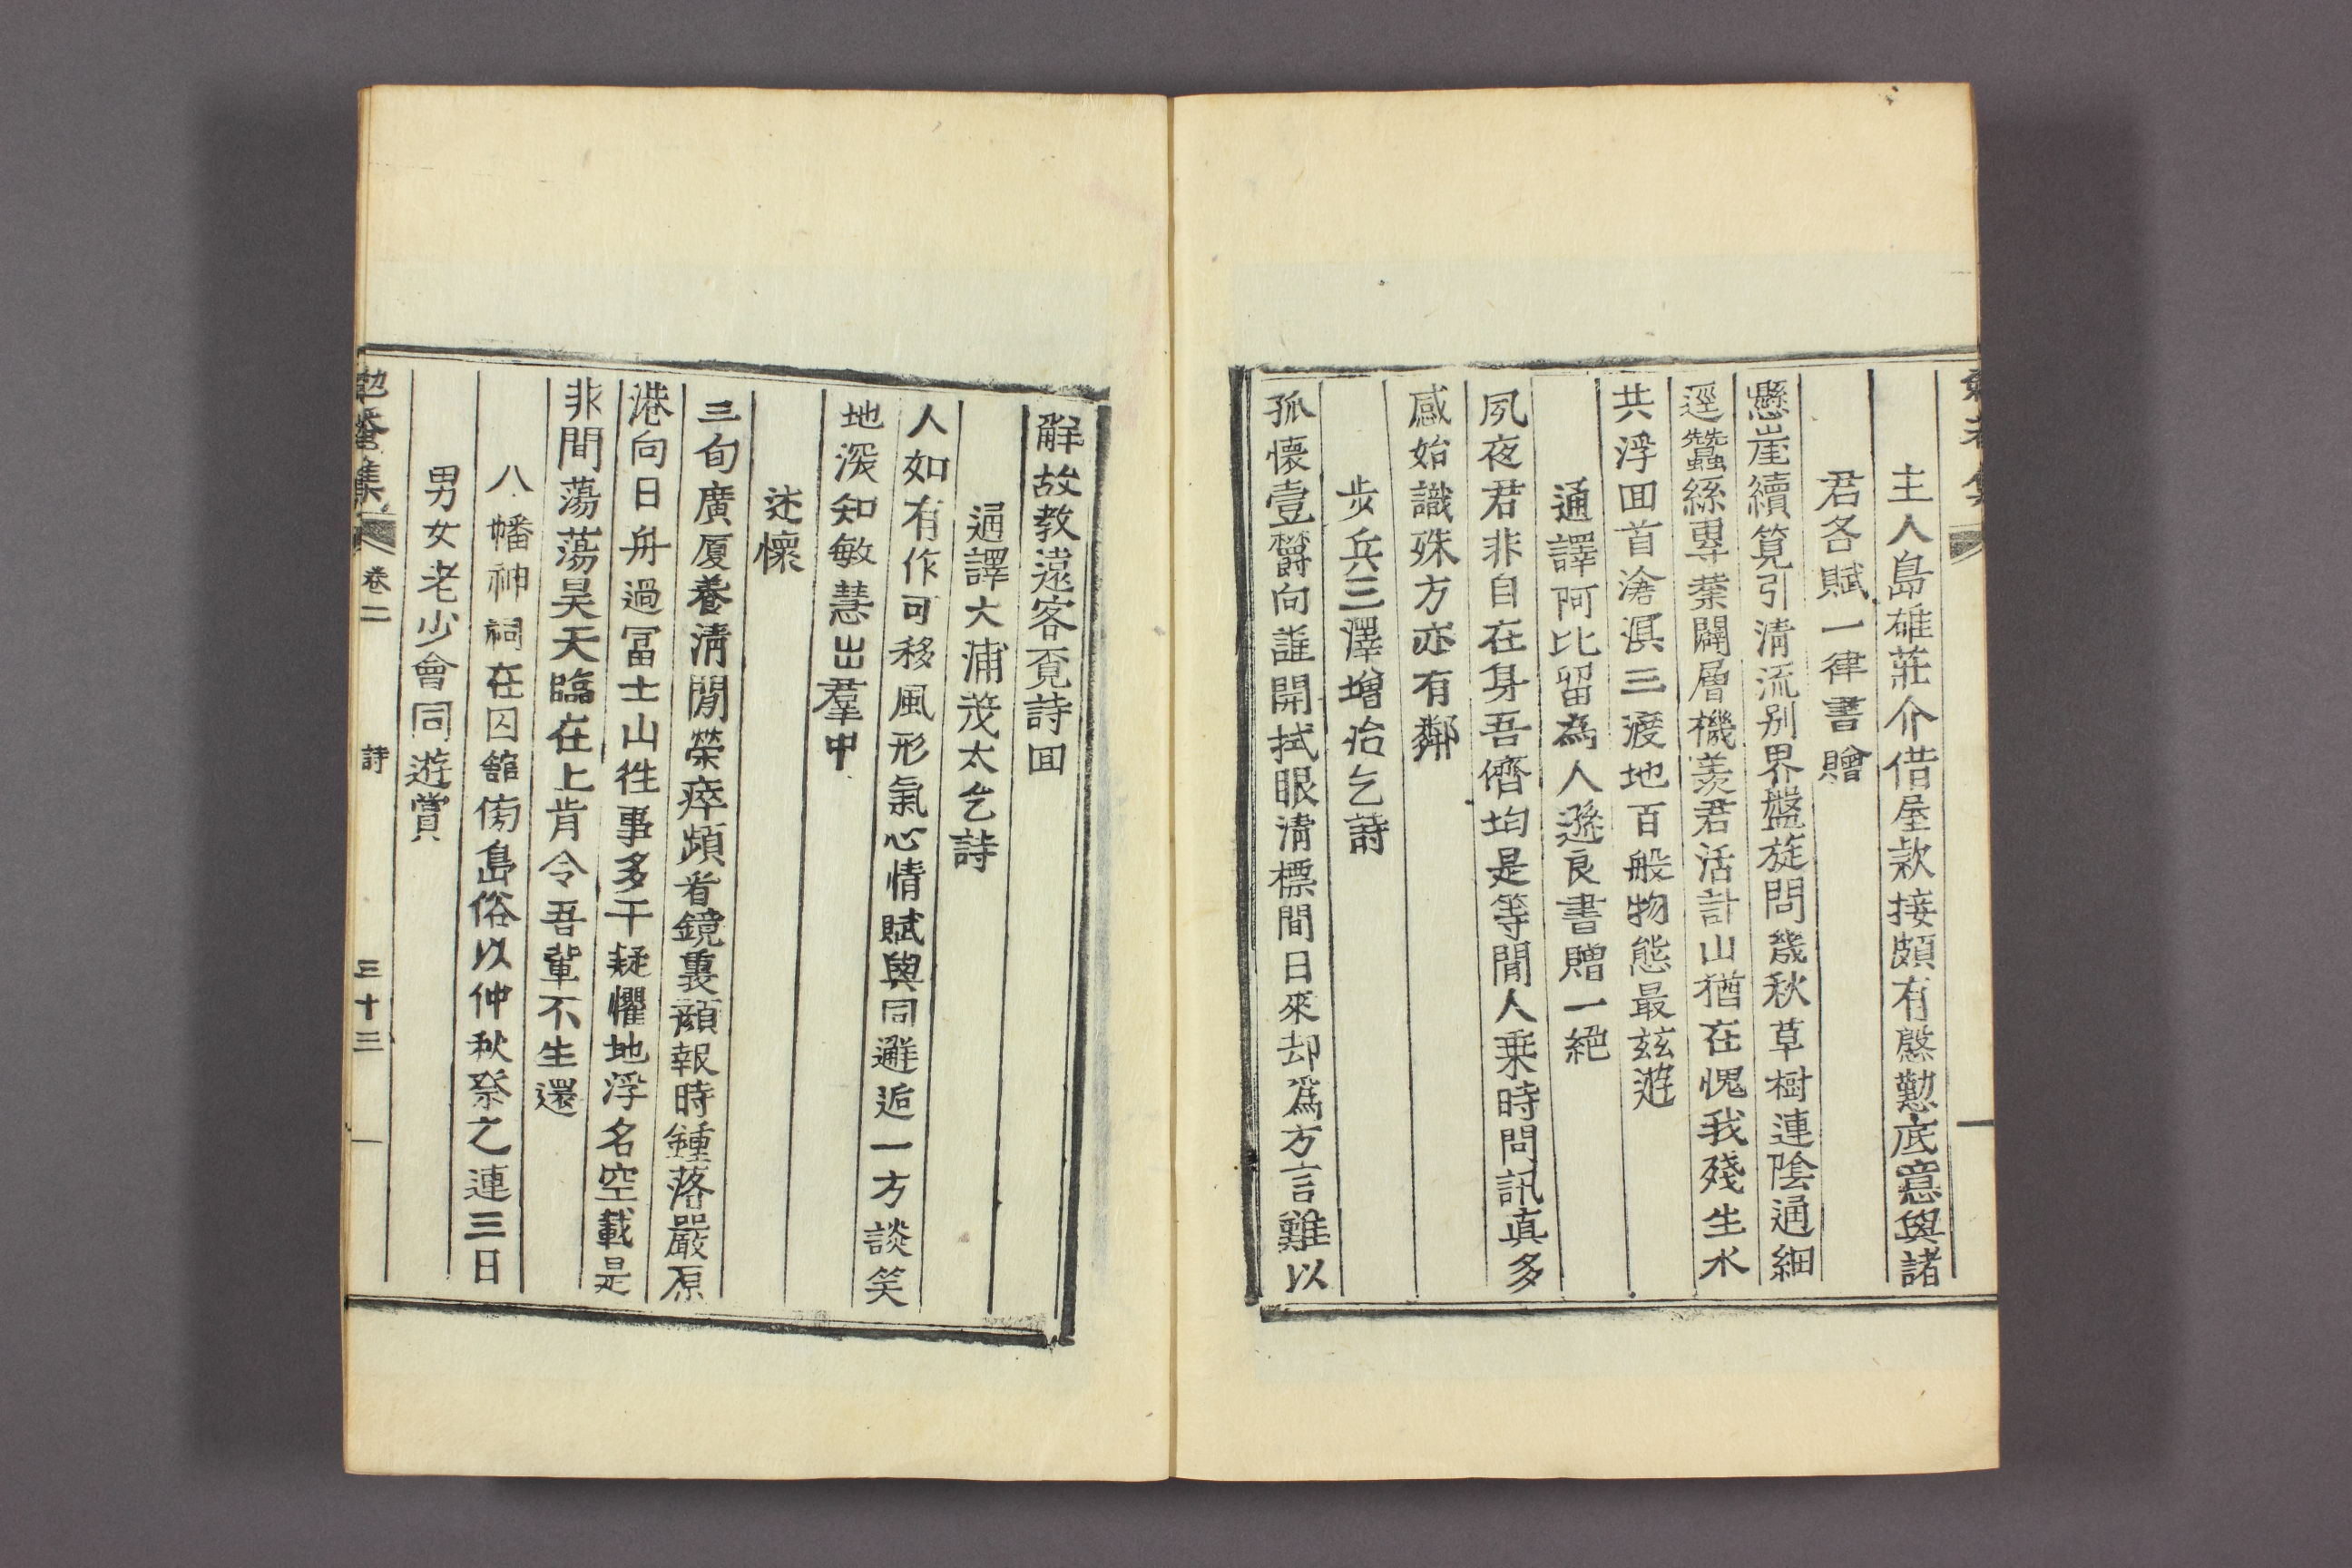 主人島雄莊介借屋款接頗有慇懃底意與諸
君各賦一律書贈
懸崖續筧引淸流別界盤旋問幾秋草樹連陰通細
逕蠶絲專業闢層機羨君活計山猶在愧我殘生水
共浮回首滄溟三渡地百般物態最玆遊
通譯阿比留為人遜良書贈一絕
夙夜君非自在身吾儕均是等閒人乗時問訊真多
感始識殊方亦有鄰
步兵三澤增治乞詩
孤懷壹欝向誰開拭眼淸標間日來却爲方言難以
解故教遠客覔詩回
通譯大浦茂太乞詩
人如有作可移風形氣心情賦與同邂逅一方談笑
地深知敏慧出羣中
述懷
三旬廣厦養淸閒榮瘁頻看鏡裏顔報時鍾落嚴原
港向日舟過冨士山往事多干疑懼地浮名空載是
非間蕩蕩昊天臨在上肯令吾輩不生還
八幡神祠在囚舘傍島俗以仲秋祭之連三日
男女老少會同遊賞
卷二
詩
三十三